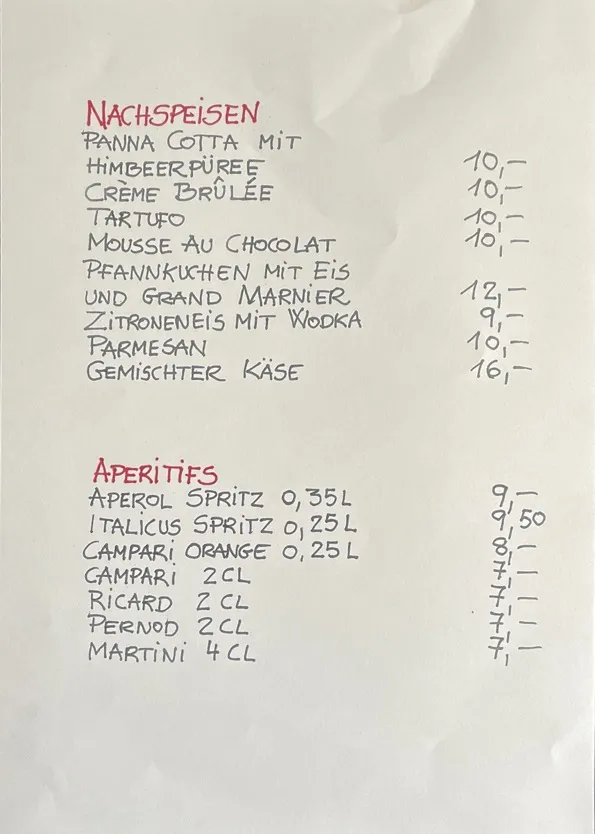 NACHSPEISEN
PANNA COTTA MIT
HIMBEERPÜREE 10,–
CRÈME BRÛLÉE 10,–
TARTUFO 10,–
MOUSSE AU CHOCOLAT 10,–
PFANNKUCHEN MIT EIS
UND GRAND MARNIER 12,–
ZITRONENEIS MIT WODKA 9,–
PARMESAN 10,–
GEMISCHTER KÄSE 16,–
APERITIFS
APEROL SPRITZ 0,35L 9,–
ITALICUS SPRITZ 0,25L 9,50
CAMPARI ORANGE 0,25L 8,–
CAMPARI 2CL 7,–
RICARD 2CL 7,–
PERNOD 2CL 7,–
MARTINI 4CL 7,–